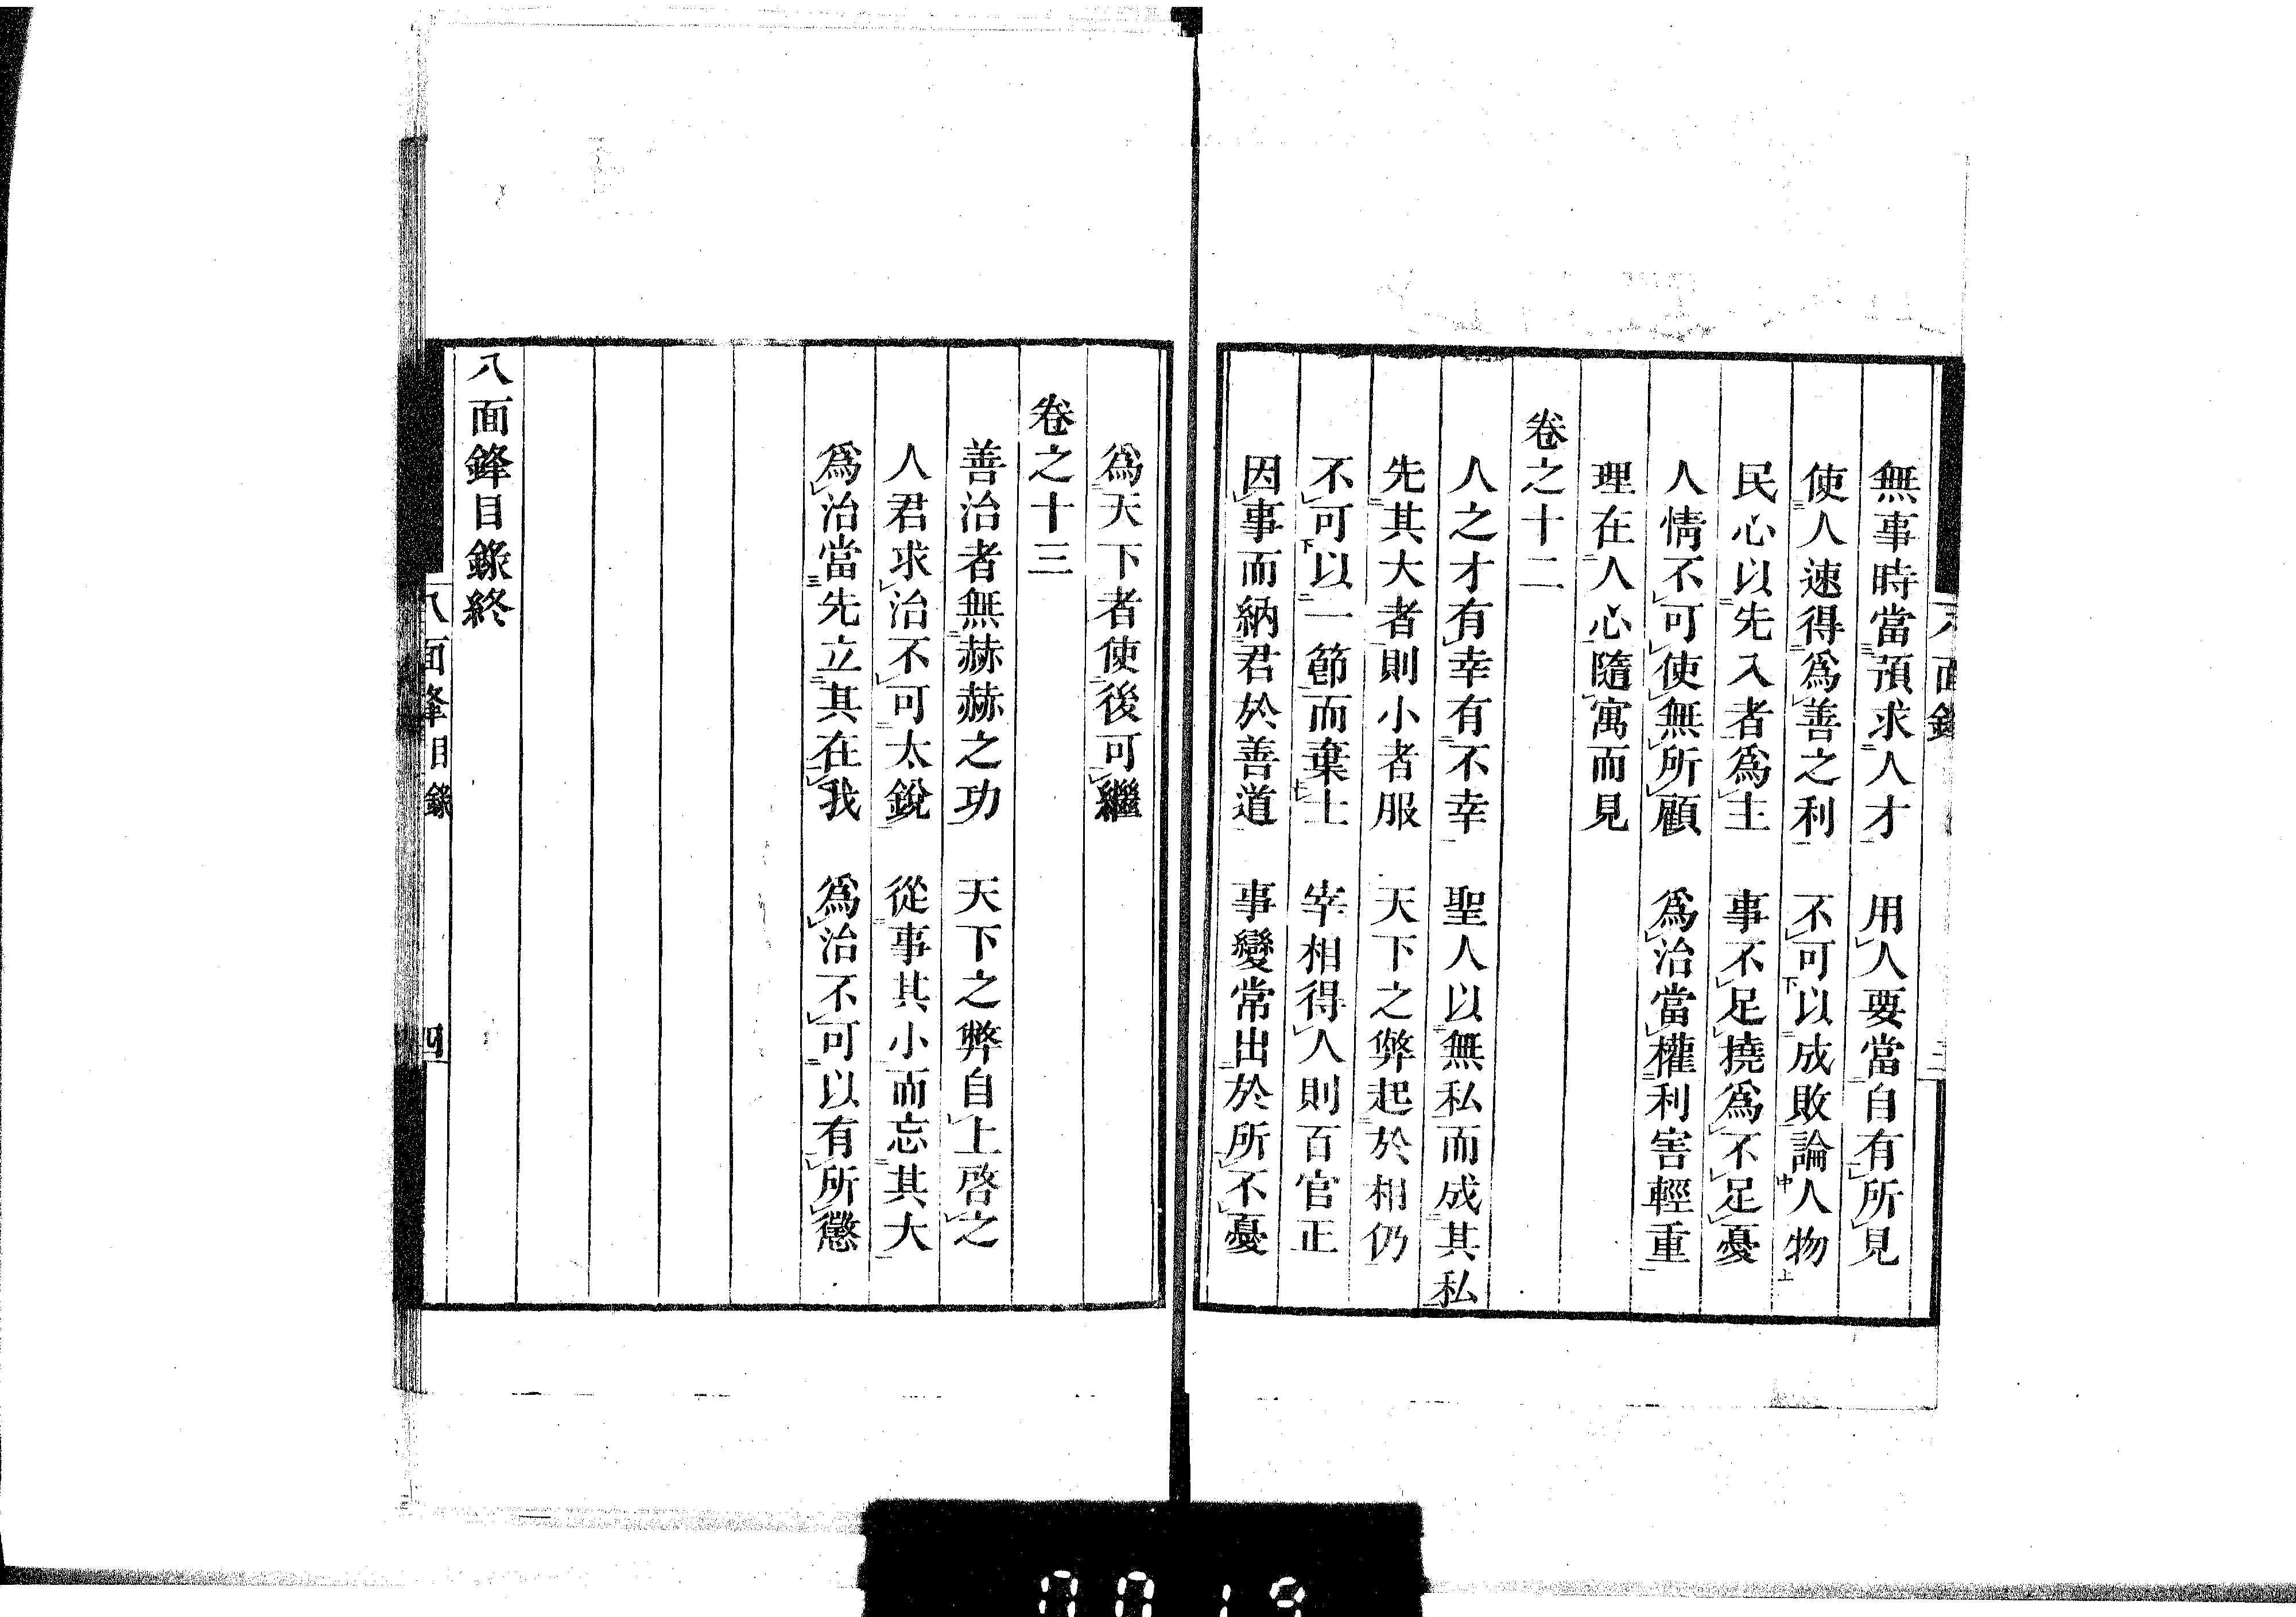 無事時當預求人才　用人要當自有所見
使人速得爲善之利　不可以成敗論人物
民心以先入者爲主　事不足撓爲不足憂
人情不可使無所顧　爲治當權利害輕重
理在人心隨寓而見
卷之十二
人之才有幸有不幸　聖人以無私而成其私
先其大者則小者服　天下之弊起於相仍
不可以一節而棄士　宰相得人則百官正
因事而納君於善道　事變常出於所不憂
爲天下者使後可繼
卷之十三
善治者無赫赫之功　天下之弊自上啓之
人君求治不可太銳　從事其小而忘其大
爲治當先立其在我　爲治不可以有所懲
八面鋒目錄終
八面鋒目錄　四
0019